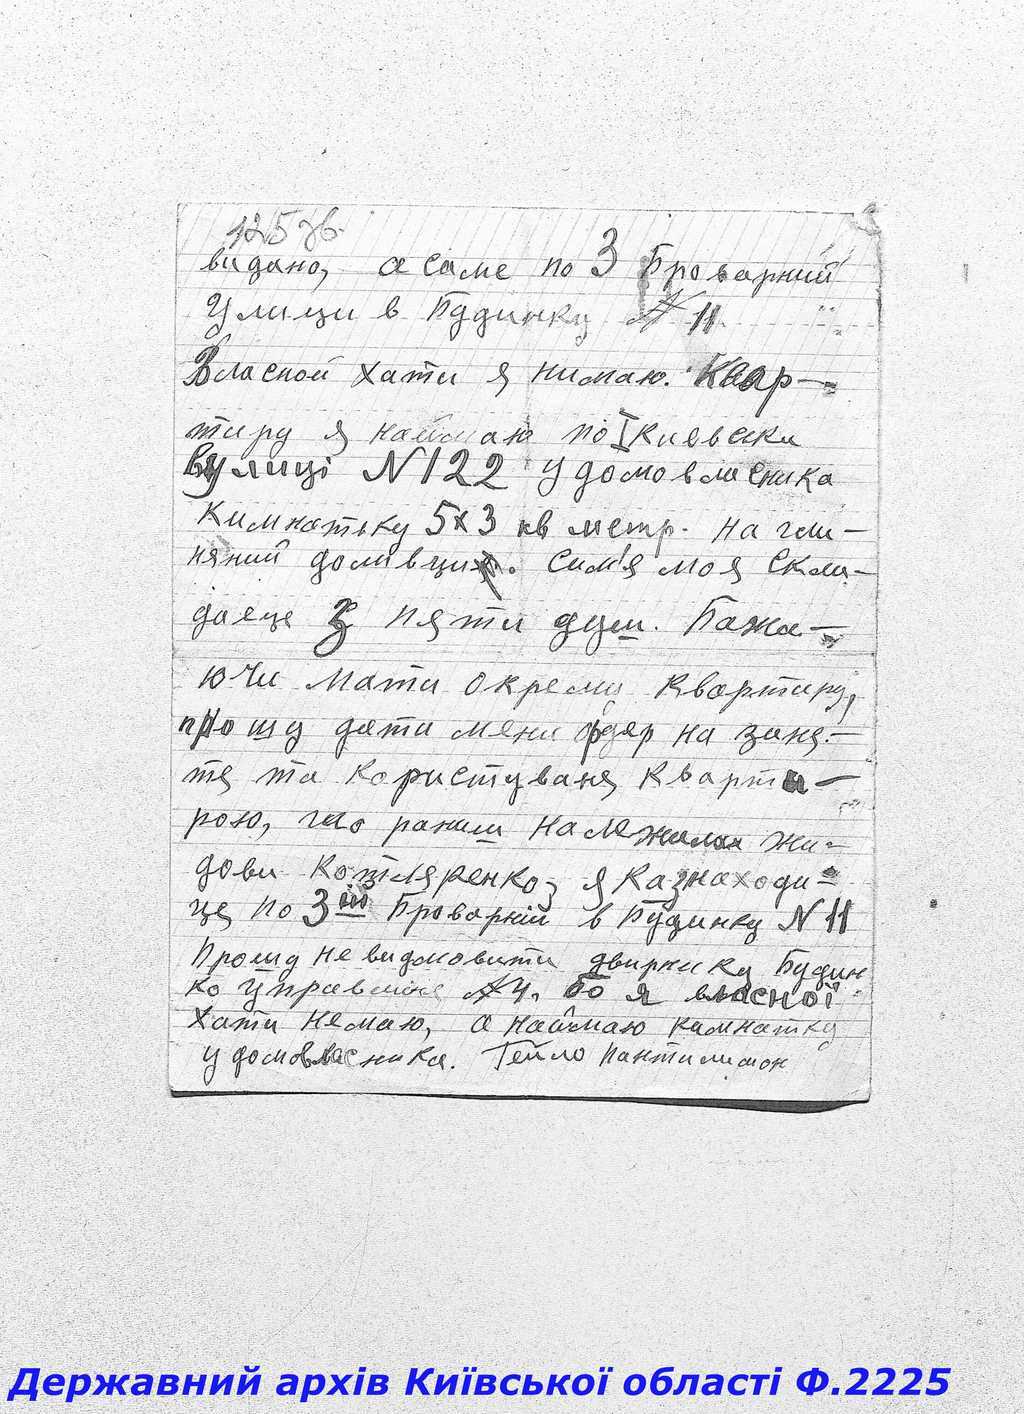 125 зв.
видано, а саме по 3 Броварний
улици в Будинку № 11
Власной хати я нимаю. Квар-
тиру я наймаю по I Киевски
вулиці № 122 у домовласника
Кимнатьку 5х3 кв метр. на гли-
няний доливци. Сим'я моя Скли-
даеце з пяти душ. Бажа-
ючи мати окреми Квартиру,
прошу дати мени ордер на заня-
тя та Користуваня Кварти-
рою, що раниш належала жи-
дови Котляренко, яка знаходи-
це по 3ій Броварній в Будинку № 11
Прошу не видмовити двирнику Будин
ко управлиня № 4, бо я власної
Хати немаю, а наймаю кимнатку
у домовласника. Гейло Пантилимон
Державний архів Київської області Ф.2225